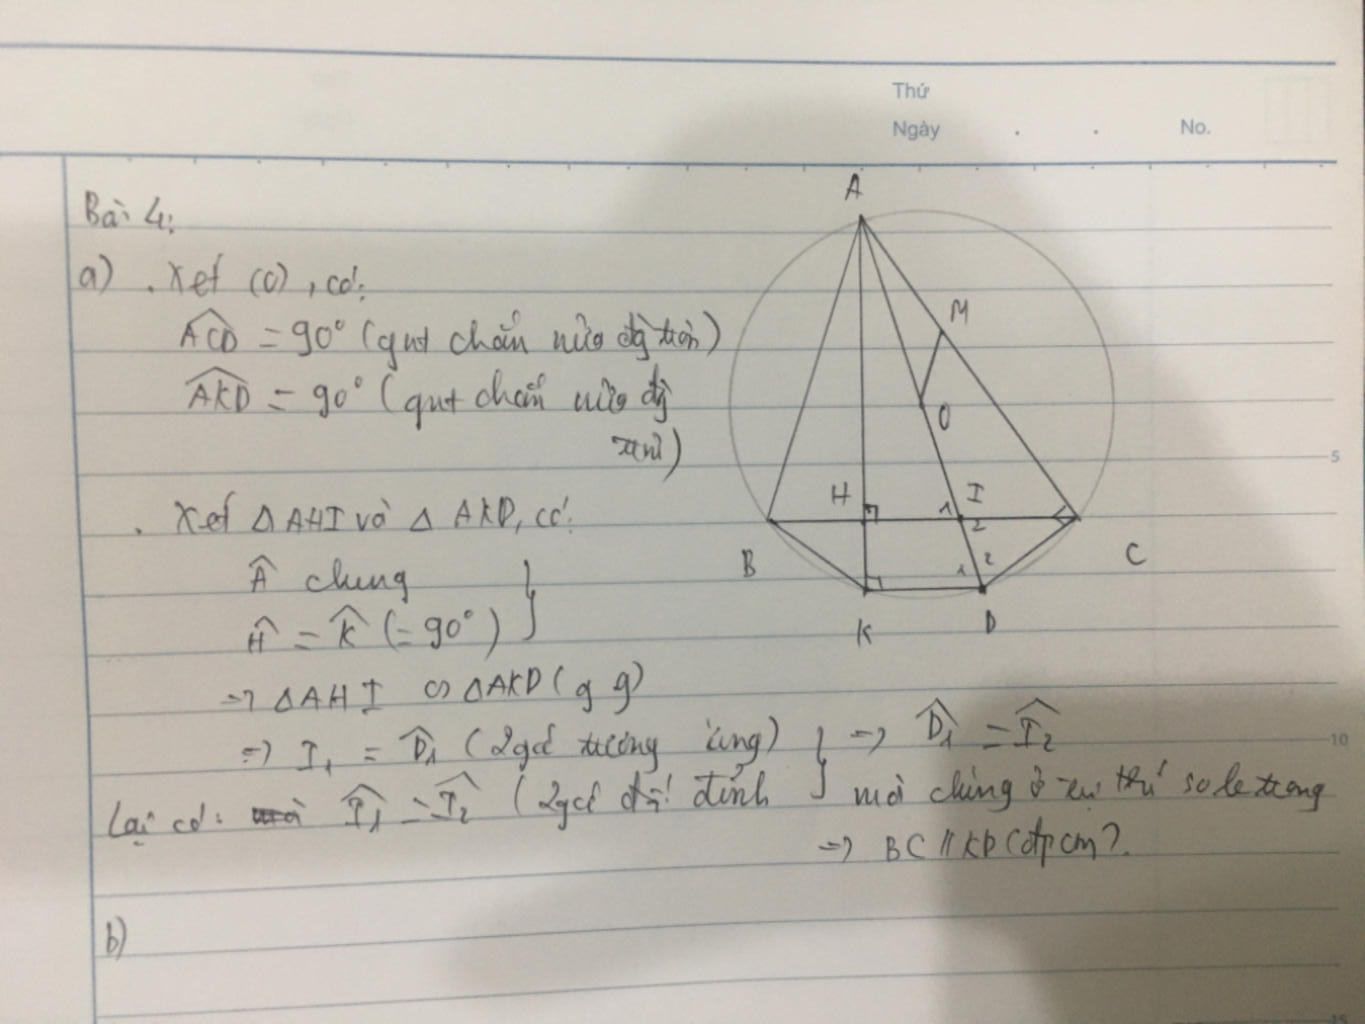 Thứ
Ngày . . No.
Bài 4:
a) . Xét (O), có:
ACD = 90° (gnt chắn nửa đg tròn)
AKD = 90° (gnt chắn nửa đg
tròn)
. Xét Δ AHI và Δ AKD, có:
Â chung
Ĥ = K̂ (= 90°)
=> Δ AHI ∽ Δ AKD (g g)
=> I₁ = D̂₁ (2 góc tương ứng) } => D̂₁ = Î₂
Lại có: Î₁ = Î₂ (2 góc đối đỉnh } mà chúng ở vị trí so le trong
=> BC // KD (đpcm).
b)
A
M
O
H
I
1
2
B
C
1
2
K
D
5
10
15